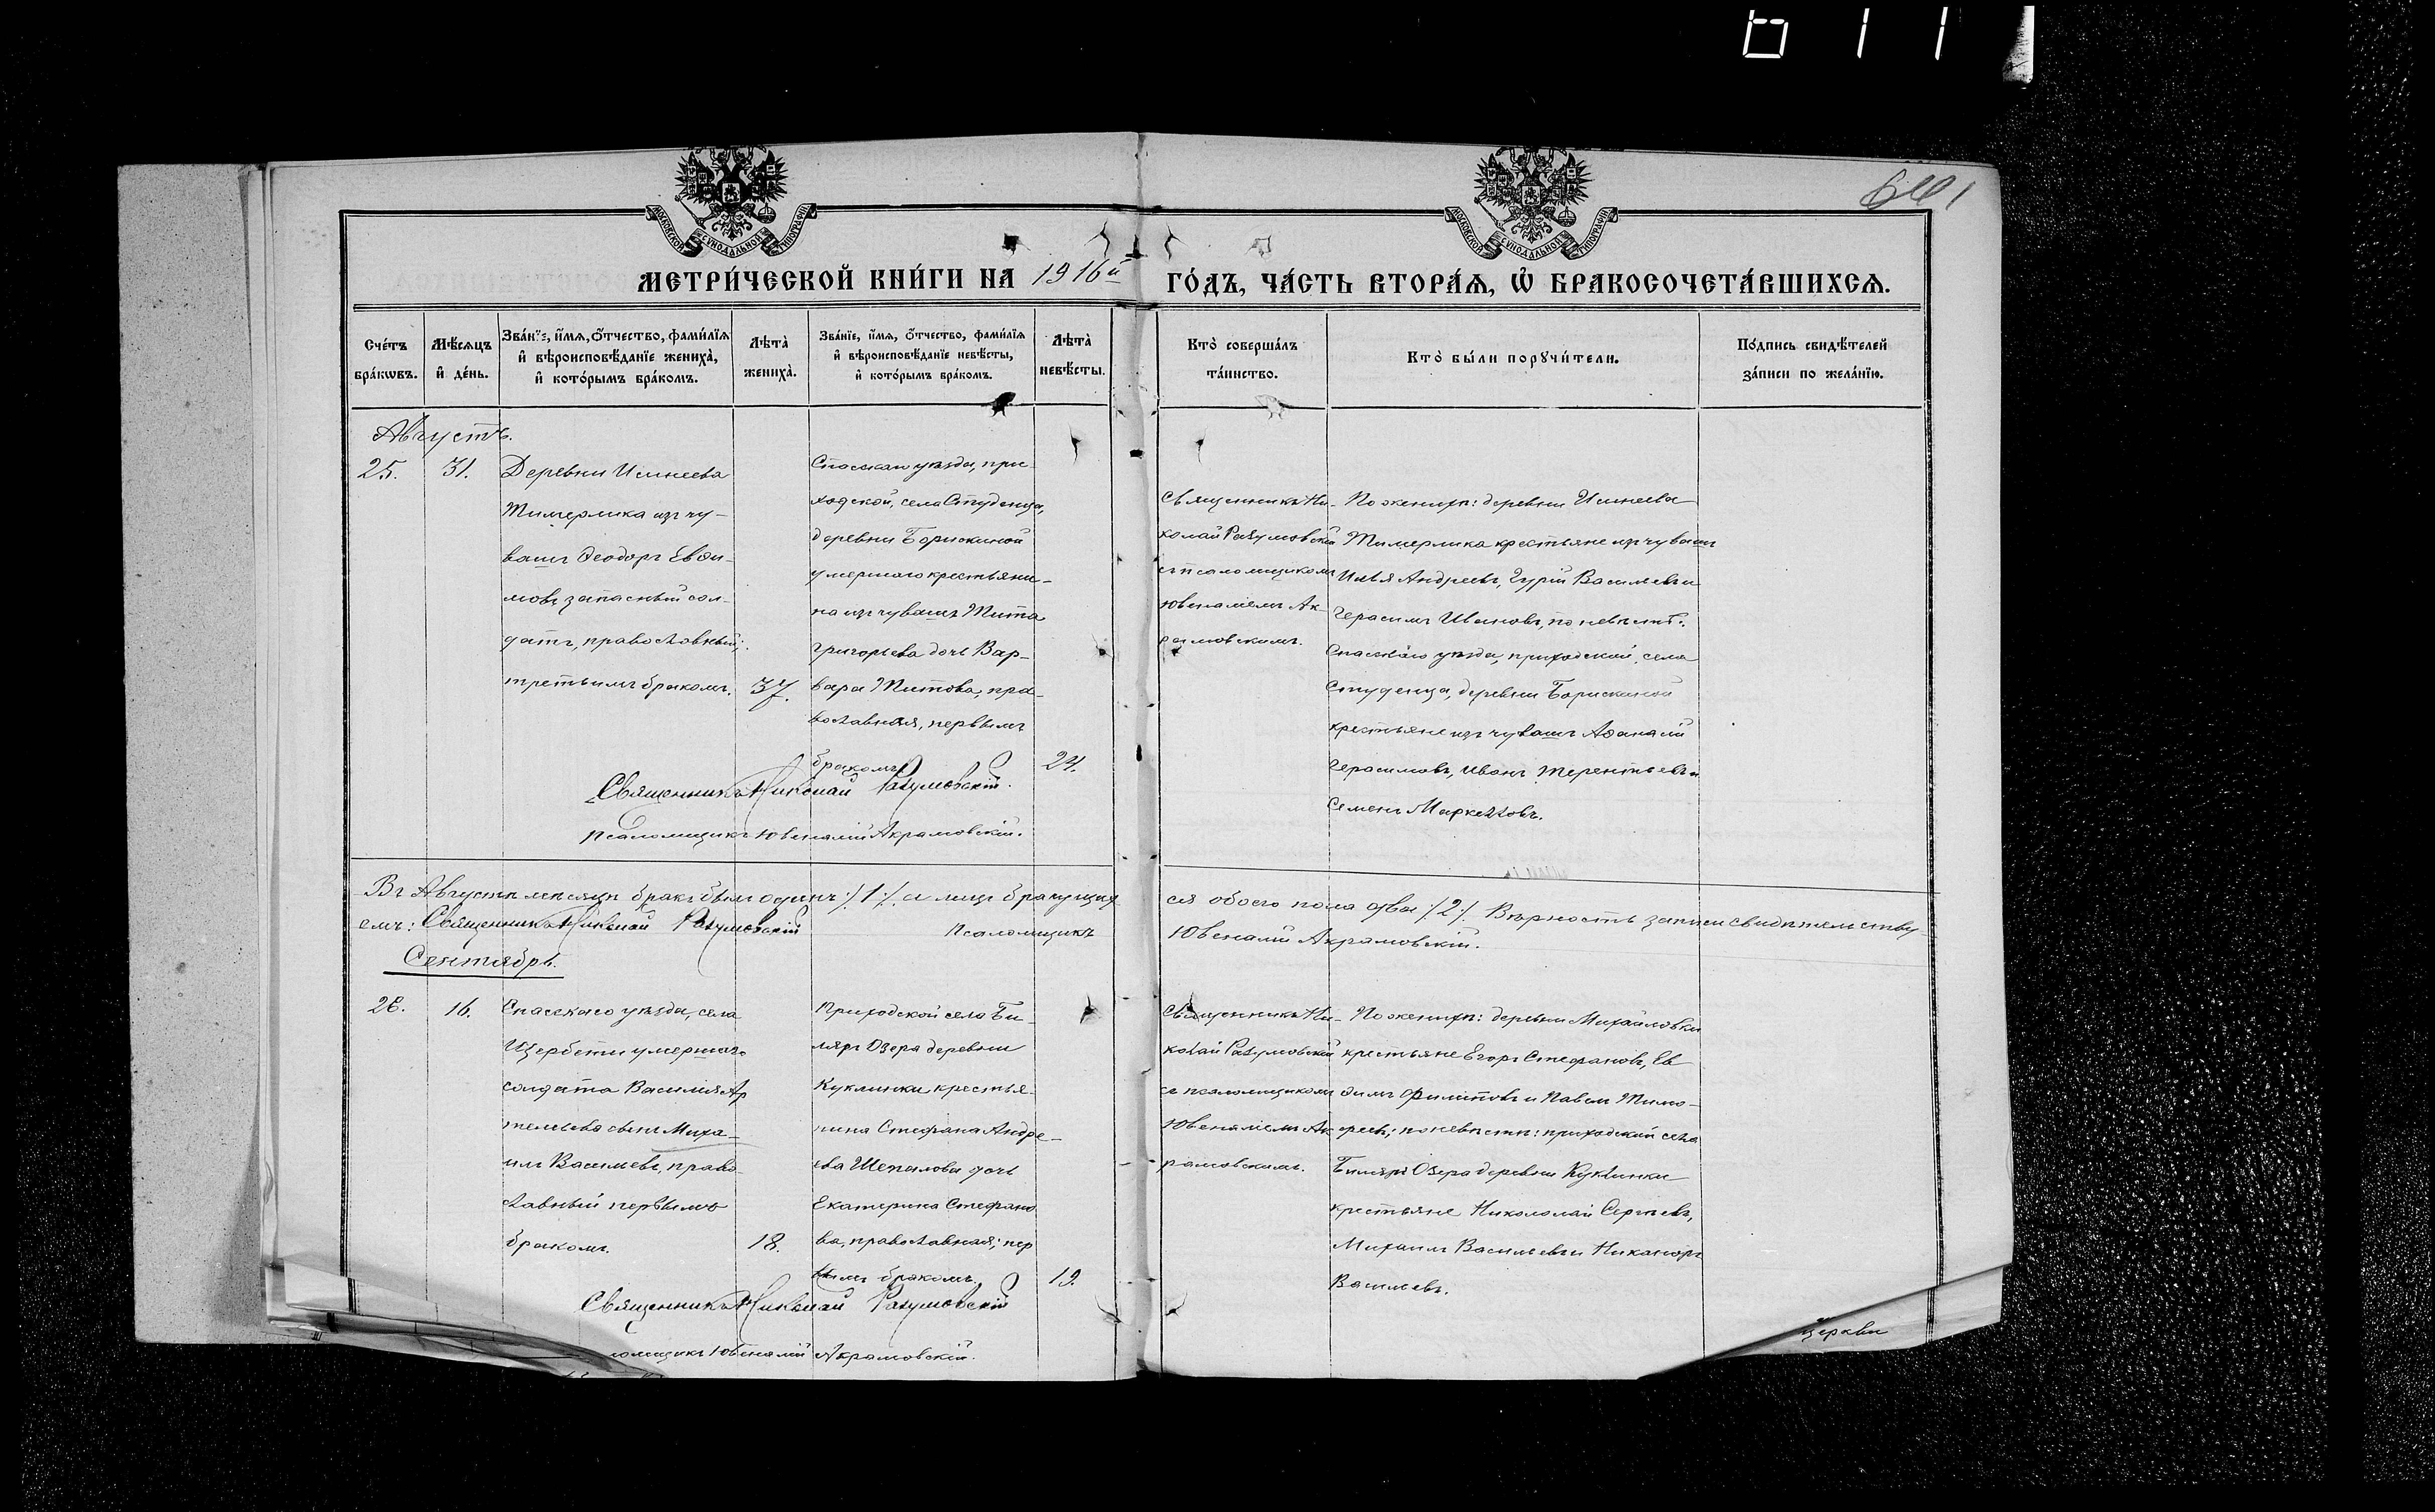 611
611
МОСКОВСКОЙ СѴНОДАЛЬНОЙ ТИПОГРАФІИ
МОСКОВСКОЙ СѴНОДАЛЬНОЙ ТИПОГРАФІИ
МЕТРИ́ЧЕСКОЙ КНИ́ГИ НА 1916й ГО́ДЪ, ЧА́СТЬ ВТОРА́Ѧ, Ѡ҆ БРАКОСОЧЕТА́ВШИХСѦ.
Сче́тъ
бра́кѡвъ.
Мѣ́сѧцъ
и҆ де́нь.
Зва́нїе, и҆́мѧ, ѻ҆́тчество, фами́лїѧ
и҆ вѣроисповѣ́данїе жениха̀,
и҆ кото́рымъ бра́комъ.
Лѣта̀
жениха̀.
Зва́нїе, и҆́мѧ, ѻ҆́тчество, фами́лїѧ
и҆ вѣроисповѣ́данїе невѣ́сты,
и҆ кото́рымъ бра́комъ.
Лѣта̀
невѣ́сты.
Кто̀ соверша́лъ
та́инство.
Кто̀ бы́ли порꙋчи́тели.
По́дпись свидѣ́телей
за́писи по жела́нїю.
Августъ.
25.
31.
Деревни Ишнеева
Тимерлика изъ чу-
вашъ Ѳеодоръ Евѳи-
мовъ запасный сол-
датъ, православный;
третьимъ бракомъ.
37.
Спасскаго уѣзда, при-
ходской, села Студенца,
деревни Борискиной
умершаго крестьяни-
на изъ чувашъ Тита
Григорьева дочь Вар-
вара Титова, пра-
вославная, первымъ
бракомъ
24.
Священникъ Ни-
колай Разумовскій
съ псаломщикомъ
Ювеналіемъ Ак-
рамовскимъ.
По женихѣ: деревни Ишнеева
Тимерлика крестьяне изъ чувашъ
Илья Андреевъ, Гурій Васильевъ и
Герасимъ Ивановъ, по невѣстѣ:
Спасскаго уѣзда, приходской, села
Студенца, деревни Борискиной
крестьяне изъ чувашъ Аѳанасій
Герасимовъ, Иванъ Терентьевъ и
Семенъ Маркелловъ.
Священникъ Николай Разумовскій.
Псаломщикъ Ювеналій Акрамовскій.
Въ Августѣ мѣсяцѣ бракъ былъ одинъ /1/ а лицъ бракущих
ся обоего пола два /2/. Вѣрность записи свидѣтельству-
емъ: Священникъ Николай Разумовскій Псаломщикъ
Ювеналій Акрамовскій.
Сентябрь.
26.
16.
Спасскаго уѣзда, села
Щербети умершаго
солдата Василія Ар
темьева сынъ Миха-
илъ Васильевъ, право-
славный первымъ
бракомъ.
18.
Приходской села Би-
ляръ Озера деревни
Куклинки крестья-
нина Стефана Андре-
ева Шепалова дочь
Екатерина Стефано
ва, православная; пер
вымъ бракомъ.
19.
Священникъ Ни-
колай Разумовскій
съ псаломщикомъ
Ювеналіемъ Ак
рамовскимъ.
По женихѣ: деревни Михайловки
крестьяне Егоръ Стефановъ, Ев
ѳимъ Филиповъ и Павелъ Тимо-
ѳеевъ; по невѣстѣ: приходской села
Биляръ Озера деревни Куклинки
крестьяне Никололай Сергѣевъ,
Михаилъ Васильевъ и Никаноръ
Васильевъ.
Священникъ Николай Разумовскій
ломщикъ Ювеналій Акрамовскій.
Церкви